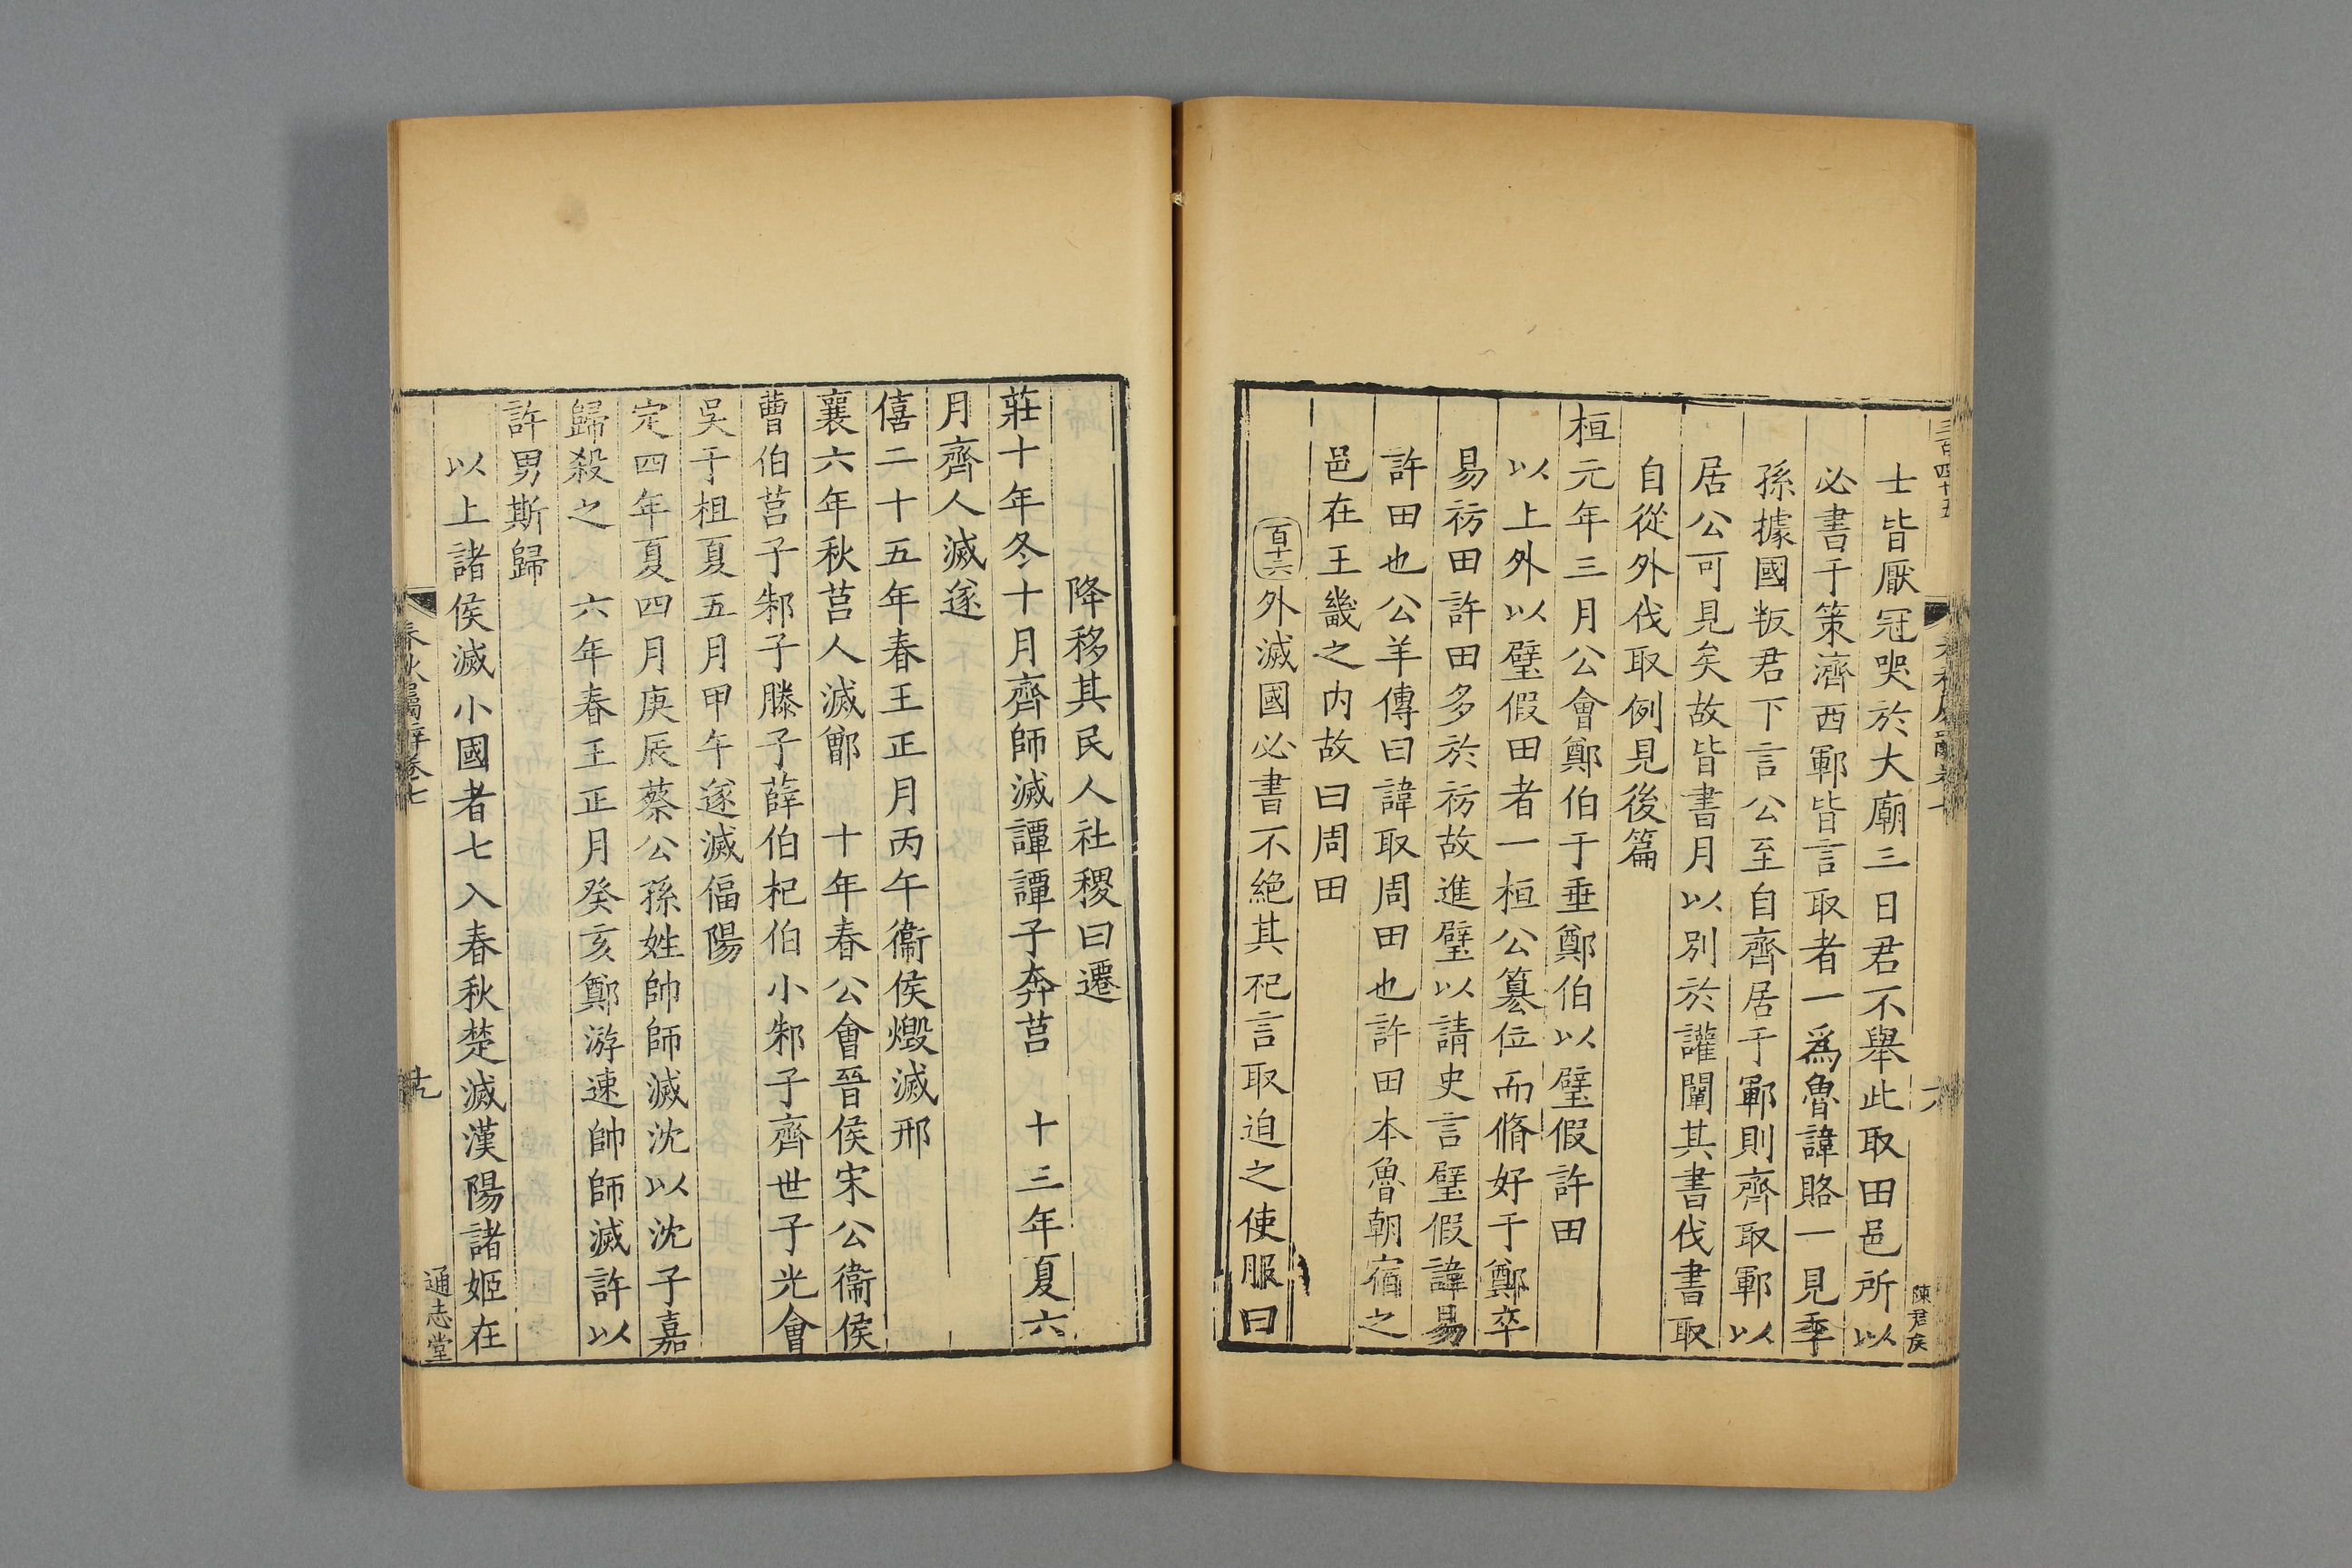 三百四十五
陳君侯
士皆厭冠哭於大廟三日君不舉此取田邑所以
必書于策濟西鄆皆言取者一爲魯諱賂一見季
孫據國叛君下言公至自齊居于鄆則齊取鄆以
居公可見矣故皆書月以別於讙闡其書伐書取
自從外伐取例見後篇
桓元年三月公會鄭伯于垂鄭伯以璧假許田
以上外以璧假田者一桓公簒位而脩好于鄭卒
易祊田許田多於祊故進璧以請史言璧假諱易
許田也公羊傳曰諱取周田也許田本魯朝宿之
邑在王畿之内故曰周田
百十六外滅國必書不絶其祀言取迫之使服曰
降移其民人社稷曰遷
莊十年冬十月齊師滅譚譚子奔莒 十三年夏六
月齊人滅遂
僖二十五年春王正月丙午衞侯燬滅邢
襄六年秋莒人滅鄫 十年春公會晉侯宋公衞侯
曹伯莒子邾子滕子薛伯杞伯小邾子齊世子光會
吳于柤夏五月甲午遂滅偪陽
定四年夏四月庚辰蔡公孫姓帥師滅沈以沈子嘉
歸殺之 六年春王正月癸亥鄭游速帥師滅許以
許男斯歸
以上諸侯滅小國者七入春秋楚滅漢陽諸姬在
春秋屬辭卷七
通志堂